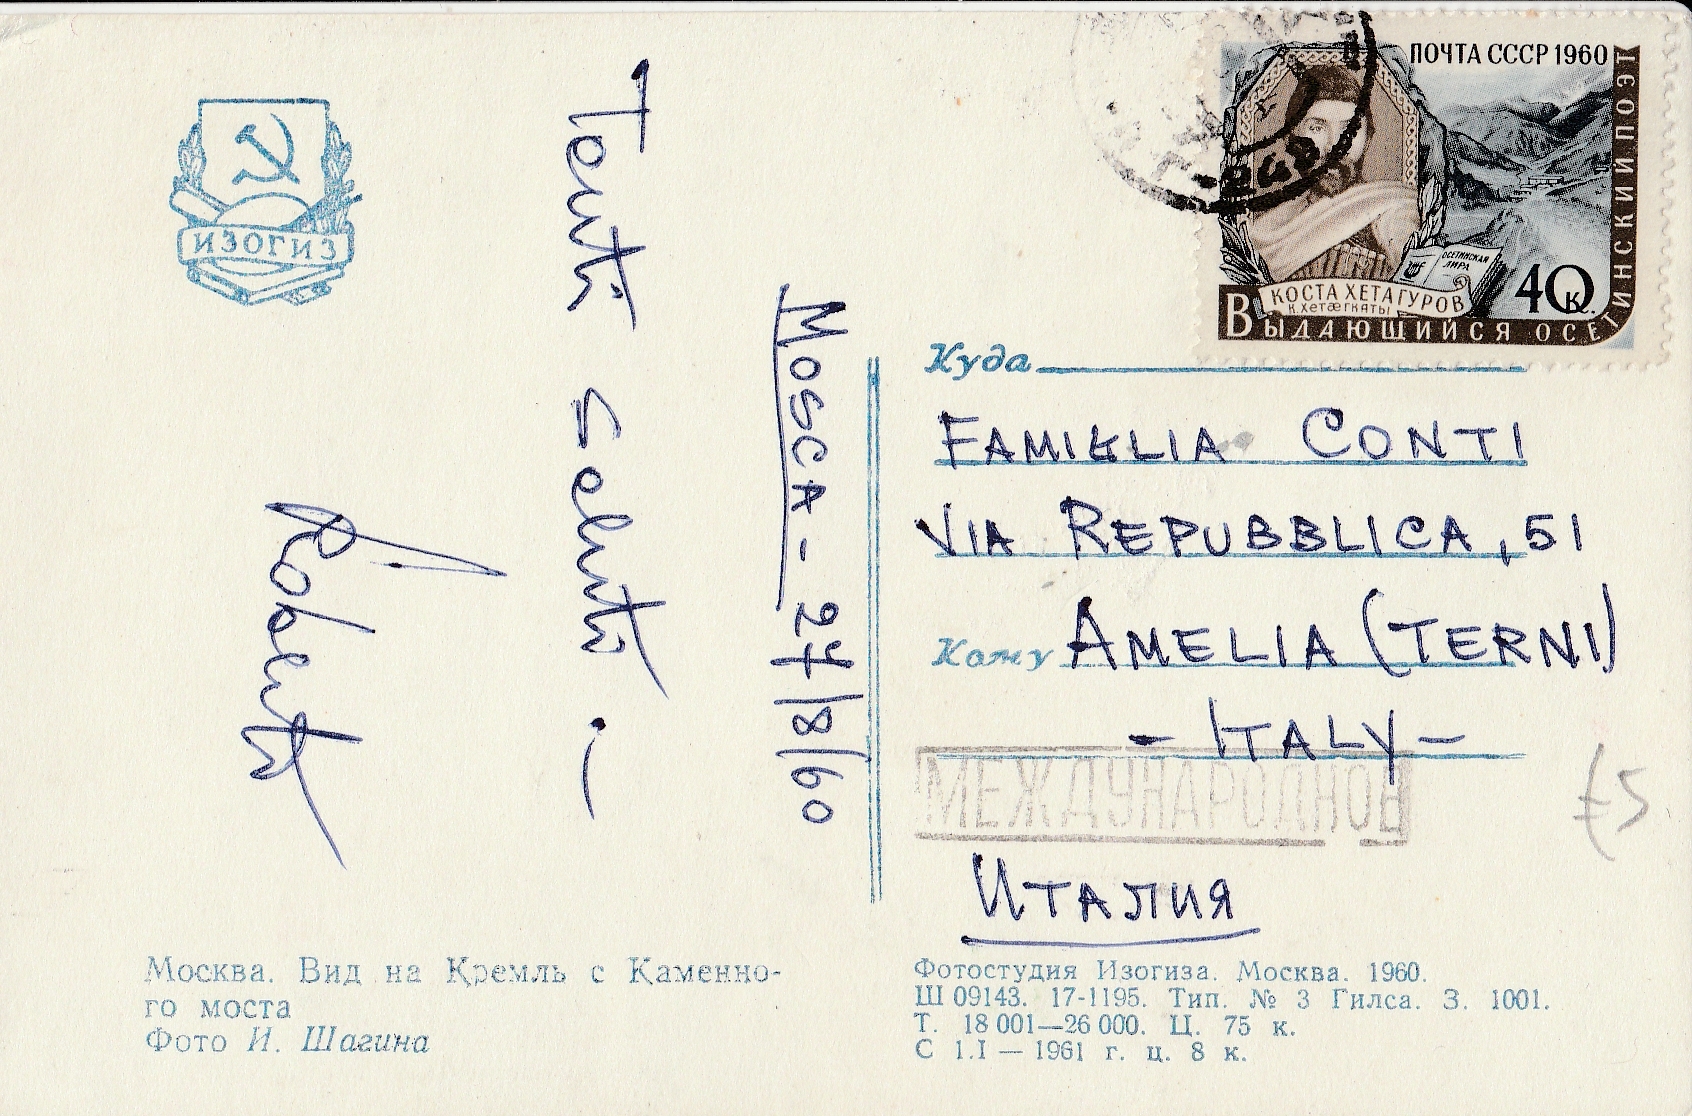 ИЗОГИЗ
Mosca - 27/8/60
Tanti saluti -
Roberto
ПОЧТА СССР 1960
ОСЕТИНСКАЯ
ЛИРА
КОСТА ХЕТАГУРОВ
К. Хетæгкаты
40 к.
ВЫДАЮЩИЙСЯ ОСЕТИНСКИЙ ПОЭТ
Куда
FAMIGLIA CONTI
VIA REPUBBLICA, 51
Кому AMELIA (TERNI)
- ITALY -
МЕЖДУНАРОДНОЕ
ИТАЛИЯ
£5
Москва. Вид на Кремль с Каменно-
го моста
Фото И. Шагина
Фотостудия Изогиза. Москва. 1960.
Ш 09143. 17-1195. Тип. № 3 Гилса. З. 1001.
Т. 18 001—26 000. Ц. 75 к.
С 1.I — 1961 г. ц. 8 к.